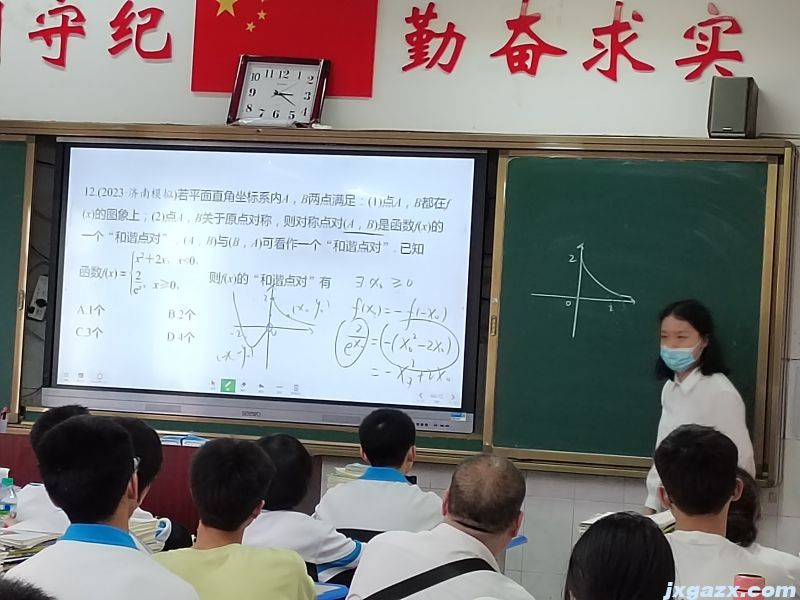 守纪 勤奋求实
12 11 1 2 3 4 5 6 7 8 9 10
12.(2023·济南模拟)若平面直角坐标系内A，B两点满足：(1)点A，B都在f
(x)的图象上；(2)点A，B关于原点对称，则对称点对(A，B)是函数f(x)的
一个“和谐点对”，(A，B)与(B，A)可看作一个“和谐点对”．已知
函数f(x)={x²+2x，x<0，
2/eˣ，x≥0，
则f(x)的“和谐点对”有
A.1个
B.2个
C.3个
D.4个
∃ x₀ ≥0
f(x₀)=-f(-x₀)
2/eˣ⁰ =-(x₀²-2x₀)
= -x₀²+2x₀
2
-2
0
(x₀, y₀)
(-x₀, -y₀)
2
0
jxgazx.com